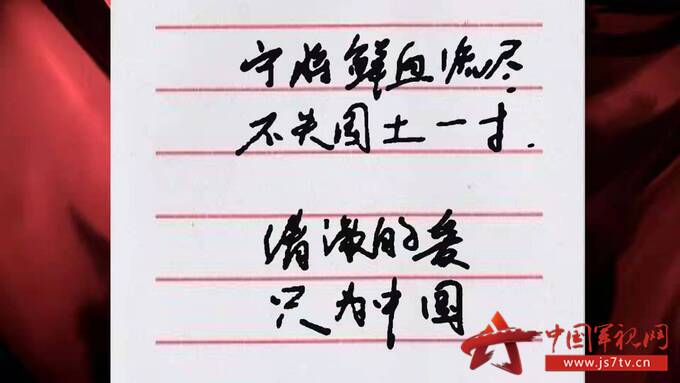 宁将鲜血流尽
不失国土一寸.
清澈的爱
只为中国
中国军视网
www.js7tv.cn